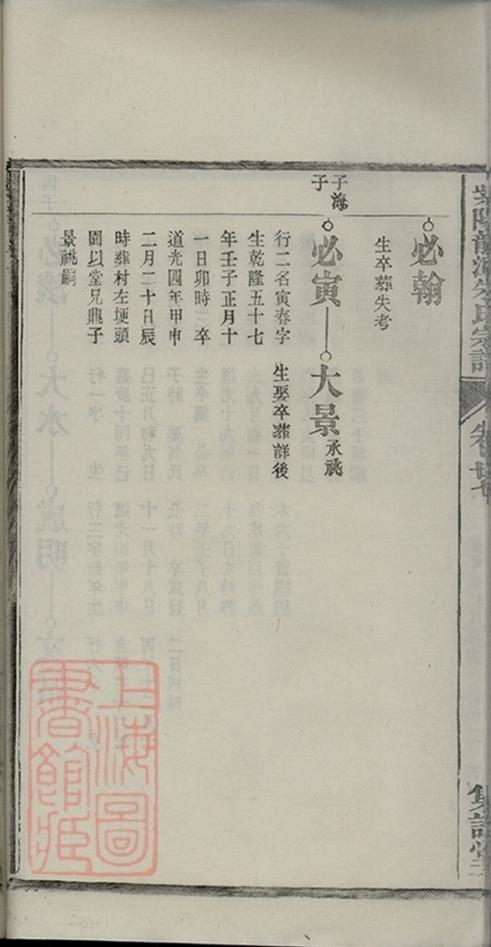 必翰
生卒葬失考
子海
子
必寅
行二名寅春字
生乾隆五十七
年壬子正月十
一日卯時 卒
道光四年甲申
二月二十日辰
時葬村左埂頭
圖以堂兄鼎子
景祧嗣
大景
承祧
生娶卒葬詳後
上海圖
書館藏